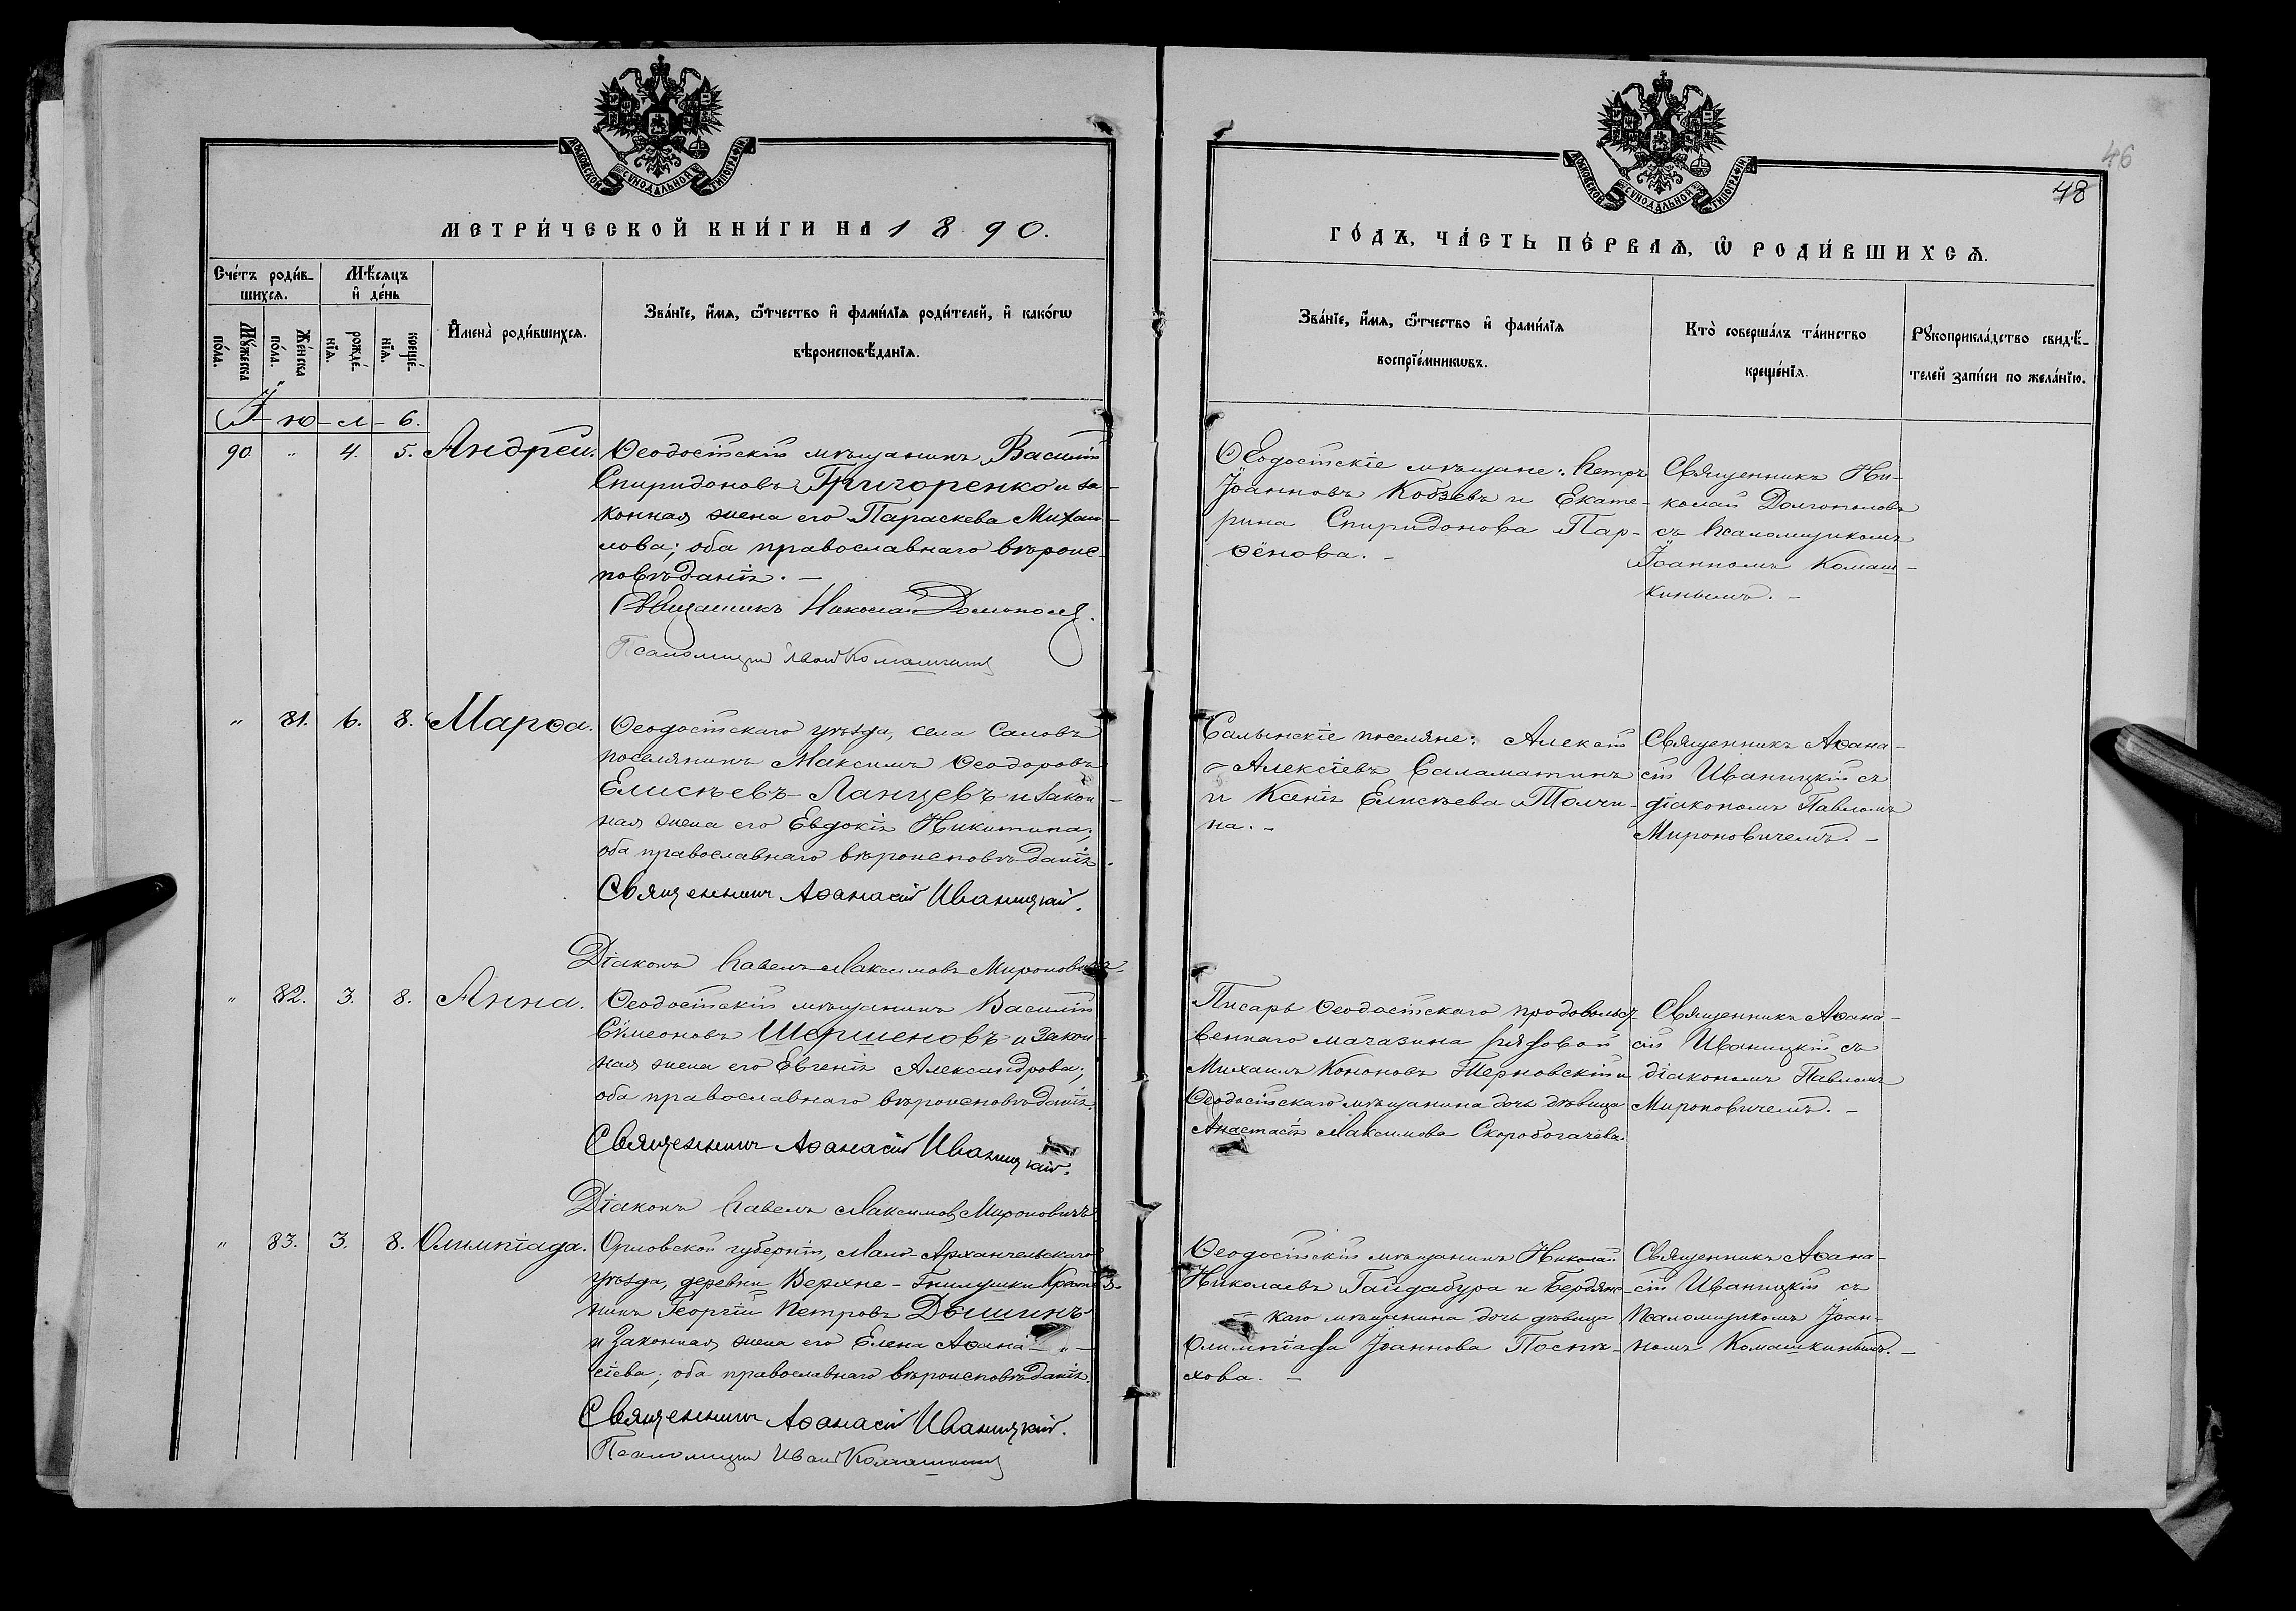 МОСКОВСКОЙ СѴНОДАЛЬНОЙ ТИПОГРАФІИ
МЕТРИ́ЧЕСКОЙ КНИ́ГИ НА 1890.
Сче́тъ роди́в-
шихсѧ.
Мѣ́сѧцъ
и҆ де́нь
И҆мена̀ роди́вшихсѧ.
Зва́нїе, и҆́мѧ, ѿтчество и҆ фами́лїѧ роди́телей, и҆ како́гѡ
вѣроисповѣ́данїѧ.
Мꙋ́жеска
по́ла.
Же́нска
по́ла.
рожде́-
нїѧ.
креще́-
нїѧ.
І-ю-л-ь.
90. " 4. 5. Андрей.
Ѳеодосійскій мѣщанинъ Василій
Спиридоновъ Григоренко и за-
конная жена его Параскева Михаи-
лова; оба православнаго вѣроис-
повѣданія. —
Священникъ Николай Долгополов.
Псаломщикъ Иван Комашкинъ
" 81. 6. 8. Марѳа.
Ѳеодосійскаго уѣзда, села Саловъ
поселянинъ Максимъ Ѳеодоровъ
Елисѣевъ-Ланцевъ и закон-
ная жена его Евдокія Никитина;
оба православнаго вѣроисповѣданія.
Священникъ Аѳанасій Иваницкій.
Діаконъ Павелъ Максимовъ Мироновичъ.
" 82. 3. 8. Анна.
Ѳеодосійскій мѣщанинъ Василій
Симеоновъ Шершеновъ и закон-
ная жена его Евгенія Александрова;
оба православнаго вѣроисповѣданія.
Священникъ Аѳанасій Иваницкій.
Діаконъ Павелъ Максимовъ Мироновичъ
" 83. 3. 8. Олимпіада.
Орловской губерніи, Мало-Архангельскаго
уѣзда, деревни Верхне-Гнилушки Крестья-
нинъ Георгій Петровъ Дёшинъ
и законная жена его Елена Аѳана-"-
сіева; оба православнаго вѣроисповѣданія.
Священникъ Аѳанасій Иваницкій.
Псаломщикъ Иван Комашкинъ
МОСКОВСКОЙ СѴНОДАЛЬНОЙ ТИПОГРАФІИ
46
48
ГО́ДЪ, ЧА́СТЬ ПЕ́РВАѦ, Ѡ҆ РОДИ́ВШИХСѦ.
Зва́нїе, и҆́мѧ, ѿтчество и҆ фами́лїѧ
воспрїе́мникѡвъ.
Кто̀ соверша́лъ та́инство
креще́нїѧ.
Рꙋкоприкла́дство свидѣ́-
телей за́писи по жела́нїю.
Ѳеодосійскіе мѣщане: Петръ
Іоанновъ Кобзевъ и Екате-
рина Спиридонова Пар-
ѳёнова. -
Священникъ Ни-
колай Долгополовъ
съ псаломщикомъ
Іоанномъ Комаш-
кинымъ. -
Салынскіе поселяне: Алексій
Алексіевъ Саламатинъ
и Ксенія Елисѣева Толчи-
на. -
Священникъ Аѳана-
сій Иваницкій съ
діакономъ Павломъ
Мироновичемъ. -
Писарь Ѳеодосійскаго продовольст-
веннаго магазина рядовой
Михаилъ Кононовъ Терновскій и
Ѳеодосійскаго мѣщанина дочь дѣвица
Анастасія Максимова Скоробогачёва.
Священникъ Аѳана-
сій Иваницкій съ
діакономъ Павломъ
Мироновичемъ. -
Ѳеодосійскій мѣщанинъ Николай
Николаевъ Гайдабура и Бердянс-
каго мѣщанина дочь дѣвица
Олимпіада Іоаннова Поспѣ-
хова. -
Священникъ Аѳана-
сій Иваницкій съ
псаломщикомъ Іоан-
номъ Комашкинымъ. -